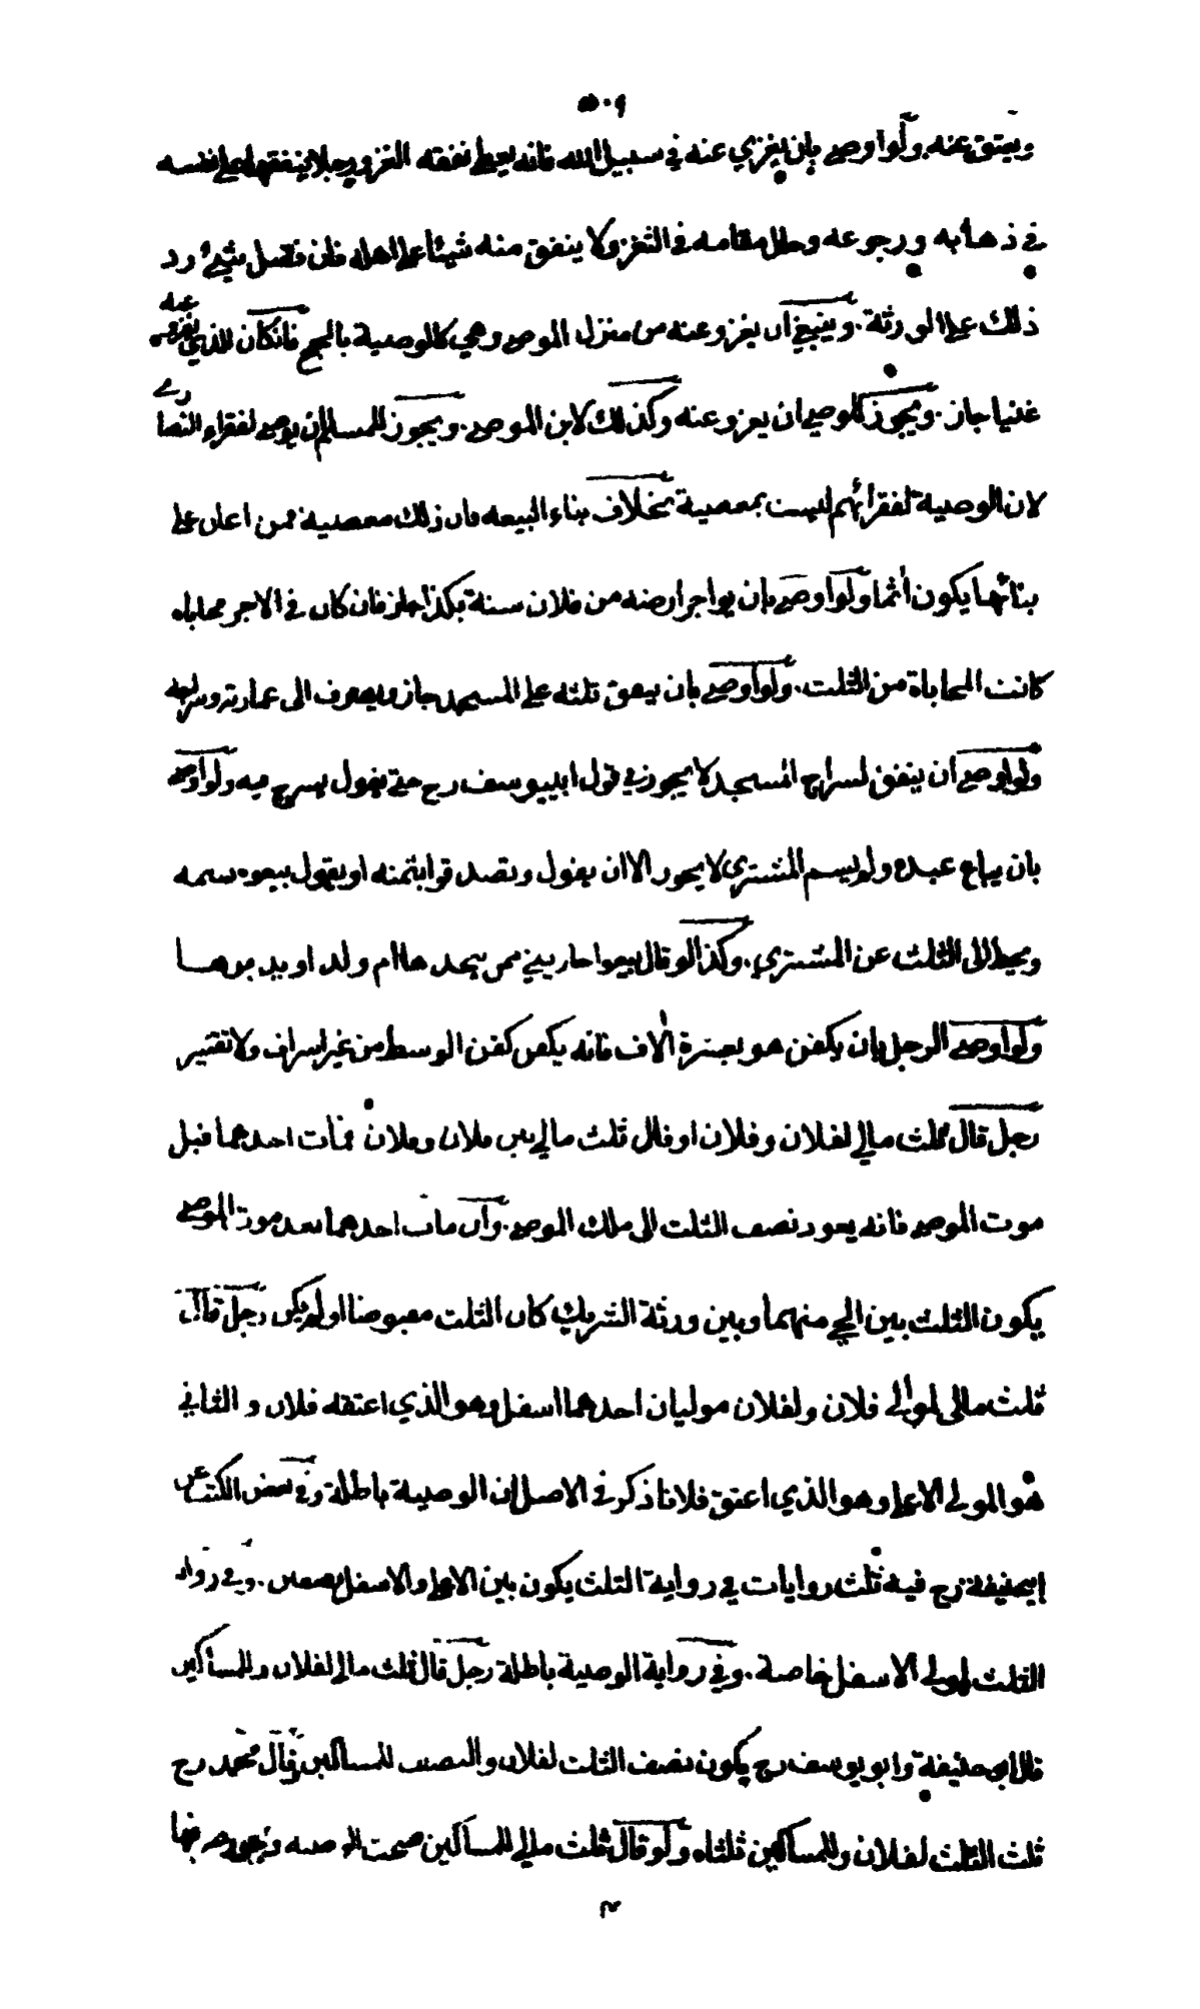 ٥٠٩
ويعتق عنه. ولو اوصى بان يغزى عنه في سبيل الله فانه يعطى نفقه الغزو رجلا ينفقها على نفسه
في ذهابه ورجوعه وحال مقامه في الثغر ولا ينفق منه شيئا على اهله فان فضل شيئ رد
ذلك على الورثة. وينبغي ان يغزو عنه من منزل الموصي وهي كالوصية بالحج فان كان الذي يغزو عنه
غنيا جاز. ويجوز للوصي ان يغزو عنه وكذلك لابن الموصي. ويجوز للمسلم ان يوصي لفقراء النصارى
لان الوصية لفقرائهم ليست بمعصية بخلاف بناء البيعه فان ذلك معصية فمن اعان على
بنائها يكون اثما ولو اوصى بان يواجر ارضه من فلان سنة بكذا جاز فان كان في الاجر محاباه
كانت المحاباة من الثلث. ولو اوصى بان ينفق ثلثه على المسجد جاز ويصرف الى عمارته وسراجه
ولو اوصى ان ينفق لسراج المسجد لا يجوز في قول ابي يوسف رح حتى يقول يسرج فيه ولو اوصى
بان يباع عبده ولم يسم المشتري لا يجوز الا ان يقول وتصدقوا بثمنه او يقول بيعوه نسمه
ويحط الى الثلث عن المشتري. وكذا لو قال بيعوا جاريتي ممن يتخذها ام ولد او يدبرها
ولو اوصى الرجل بان يكفن هو بعشرة الاف فانه يكفن كفن الوسط من غير اسراف ولا تقتير
رجل قال ثلث مالي لفلان وفلان او قال ثلث مالي بين فلان وفلان فمات احدهما قبل
موت الموصي فانه يعود نصف الثلث الى ملك الموصي. وان مات احدهما بعد موت الموصي
يكون الثلث بين الحي منهما وبين ورثة الشريك كان الثلث مقبوضا او لم يكن رجل قال
ثلث مالى لمولى فلان ولفلان موليان احدهما اسفل وهو الذي اعتقه فلان و الثاني
هو المولى الاعلى وهو الذي اعتق فلانا ذكر في الاصل ان الوصية باطلة وفي بعض الكتب عن
ابي حنيفة رح فيه ثلث روايات في رواية الثلث يكون بين الاعلى والاسفل نصفين. وفي رواية
الثلث لمولى الاسفل خاصة. وفي رواية الوصية باطلة رجل قال ثلث مالى لفلان وللمساكين
قال ابو حنيفة وابو يوسف رح يكون نصف الثلث لفلان والنصف للمساكين وقال محمد رح
ثلث الثلث لفلان وللمساكين ثلثاه ولو قال ثلث مالي للمساكين صحت الوصية ويجوز صرفها